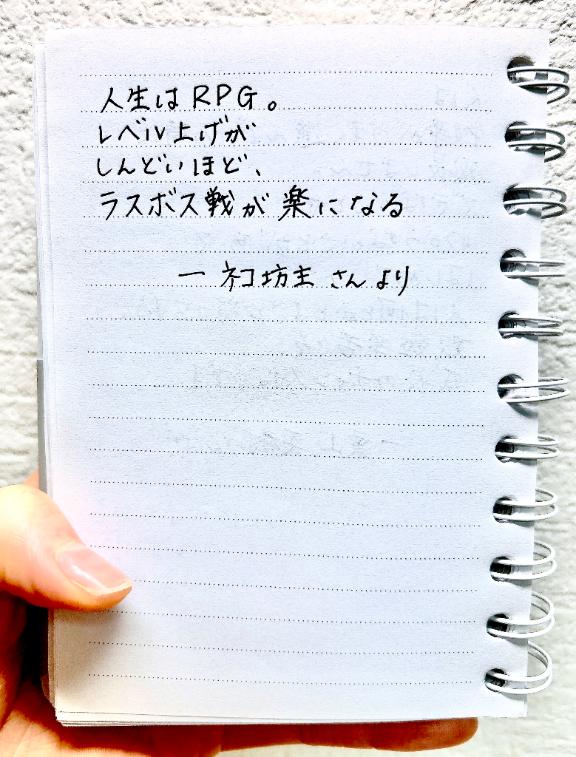 人生はRPG。
レベル上げが
しんどいほど、
ラスボス戦が楽になる
― ネコ坊主さんより